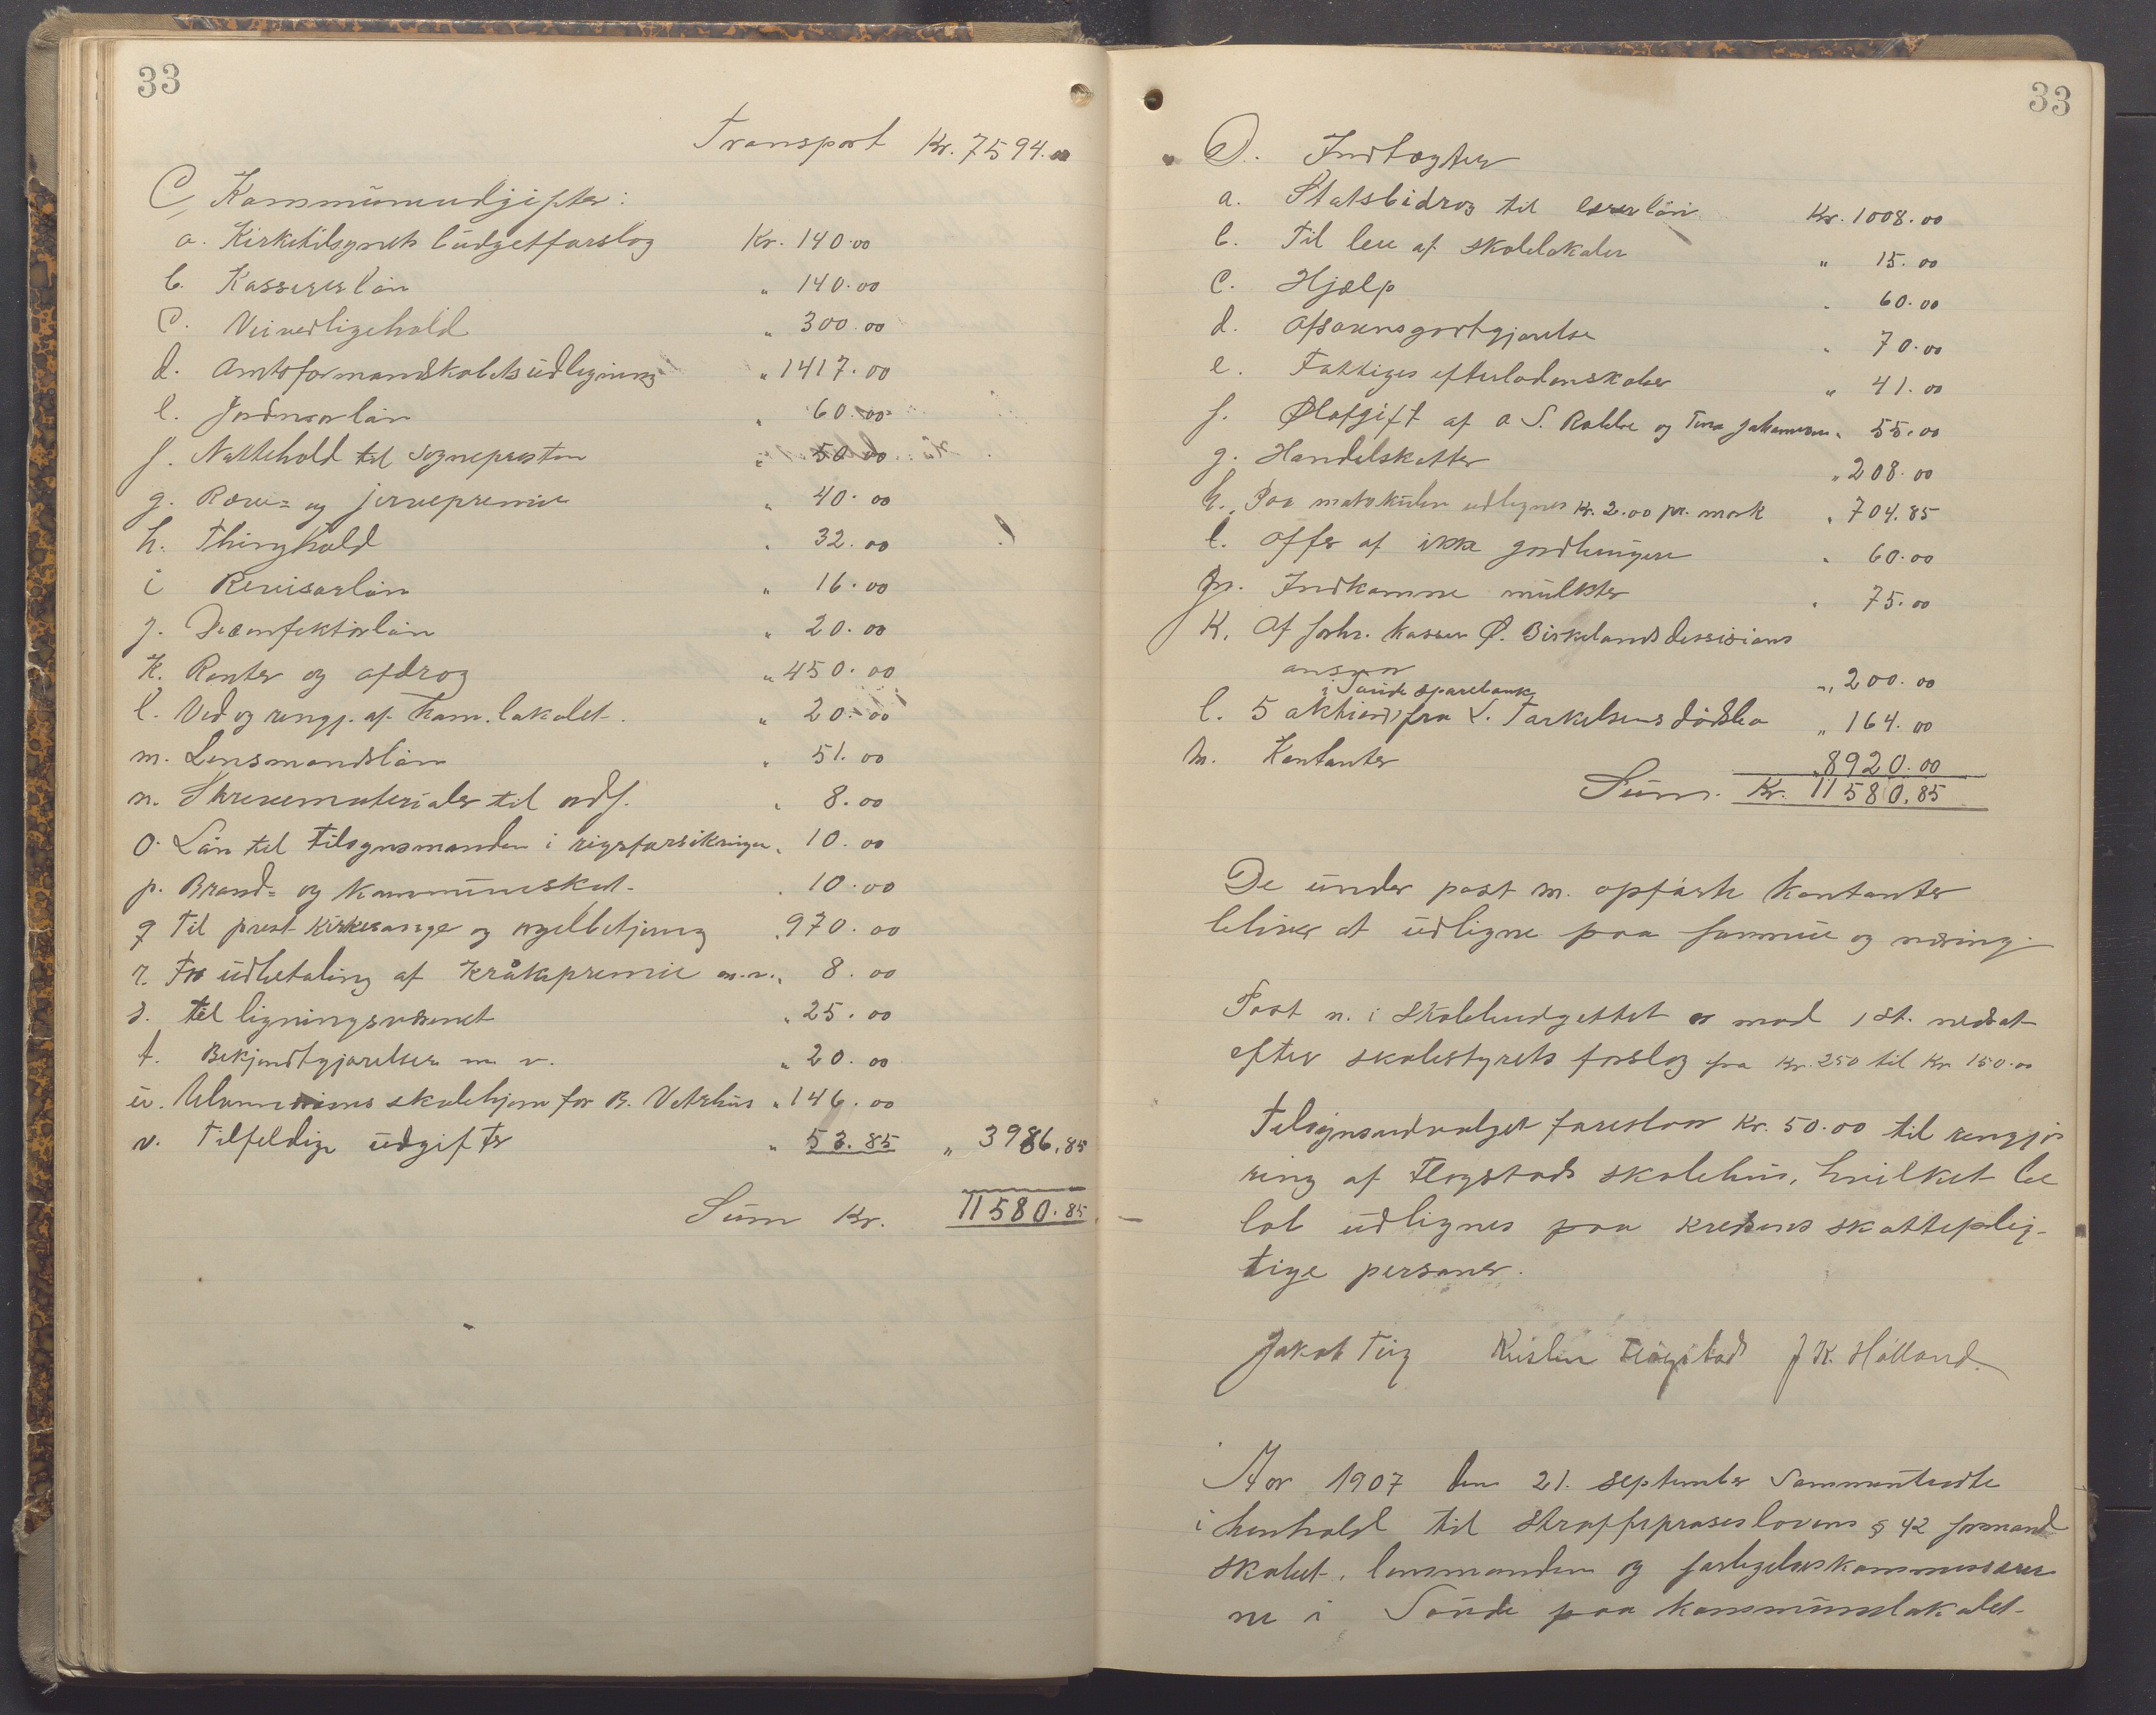 33
Transport Kr. 7594.00
C, Kommuneudgifter:
a. Kirketilsynets budgetforslag Kr. 140.00
b. Kassererløn " 140.00
c. Veivedligehold " 300.00
d. Amtsformandskabets udligning " 1417.00
e. Jordmorløn " 60.00
f. Nattehold til sognepresten " 50.00
g. Ræve= og jervepremie " 40.00
h. Thinghold " 32.00
i Revisorløn " 16.00
j. Desenfektørløn " 20.00
k. Renter og afdrag " 450.00
l. Ved og rengj. af kom. lokalet. " 20.00
m. Lensmandsløn " 51.00
n. Skrivematerialer til ordf. " 8.00
o. Løn til tilsynsmanden i rigsforsikringen " 10.00
p. Brand= og kommuneskat. " 10.00
q Til prest kirkesanger og orgelbetjening " 970.00
r. For udbetaling af kråkepremie m.v. " 8.00
s. til ligningsvæsenet " 25.00
t. Bekjendtgjørelser m v. " 20.00
u. skolehjem for B. Vetrhus " 146.00
v. Tilfeldige udgifter " 53.85 " 3986.85
Sum Kr. 11580.85
33
D. Indtægter
a. Statsbidrag til lærerløn Kr. 1008.00
b. Til leie af skolelokaler " 15.00
c. Hjælp " 60.00
d. Afsavnsgodtgjørelse " 70.00
e. Fattiges efterladenskaber " 41.00
f. Ølafgift af O S. Rabbe og Tena Johannesen " 55.00
g. Handelskatter " 208.00
h. Paa matrikulen udlignes Kr. 2.00 pr. mark " 704.85
i. Offer af ikke gaardbrugere " 60.00
j. Indkomne mulkter " 75.00
K. Af forhv. kasser Ø. Birkelands dessisions
ansvar " 200.00
i Saude sparebank
l. 5 aktier fra L. Tarkelsens dødsbo " 164.00
m. Kontanter " 8920.00
Sum. Kr. 11580.85
De under post m. opførte kontanter
bliver at udligne paa formue og næring.
Post n. i skolebudgettet er mod 1 st. nedsat
efter skolestyrets forslag fra Kr. 250 til Kr 150.00
Tilsynsudvalget foreslaar Kr. 50.00 til rengjø
ring af Flogstad skolehus, hvilket be
løb udlignes paa kredsens skatteplig-
tige personer.
Jakob Tug Kristen Fløgstad J K. Hølland.
Aar 1907 den 21. september sammentrædte
i henhold til Straffeproseslovens § 42 formand
skabet, lensmanden og forligelseskommissærer
ne i Saude paa kommunelokalet.